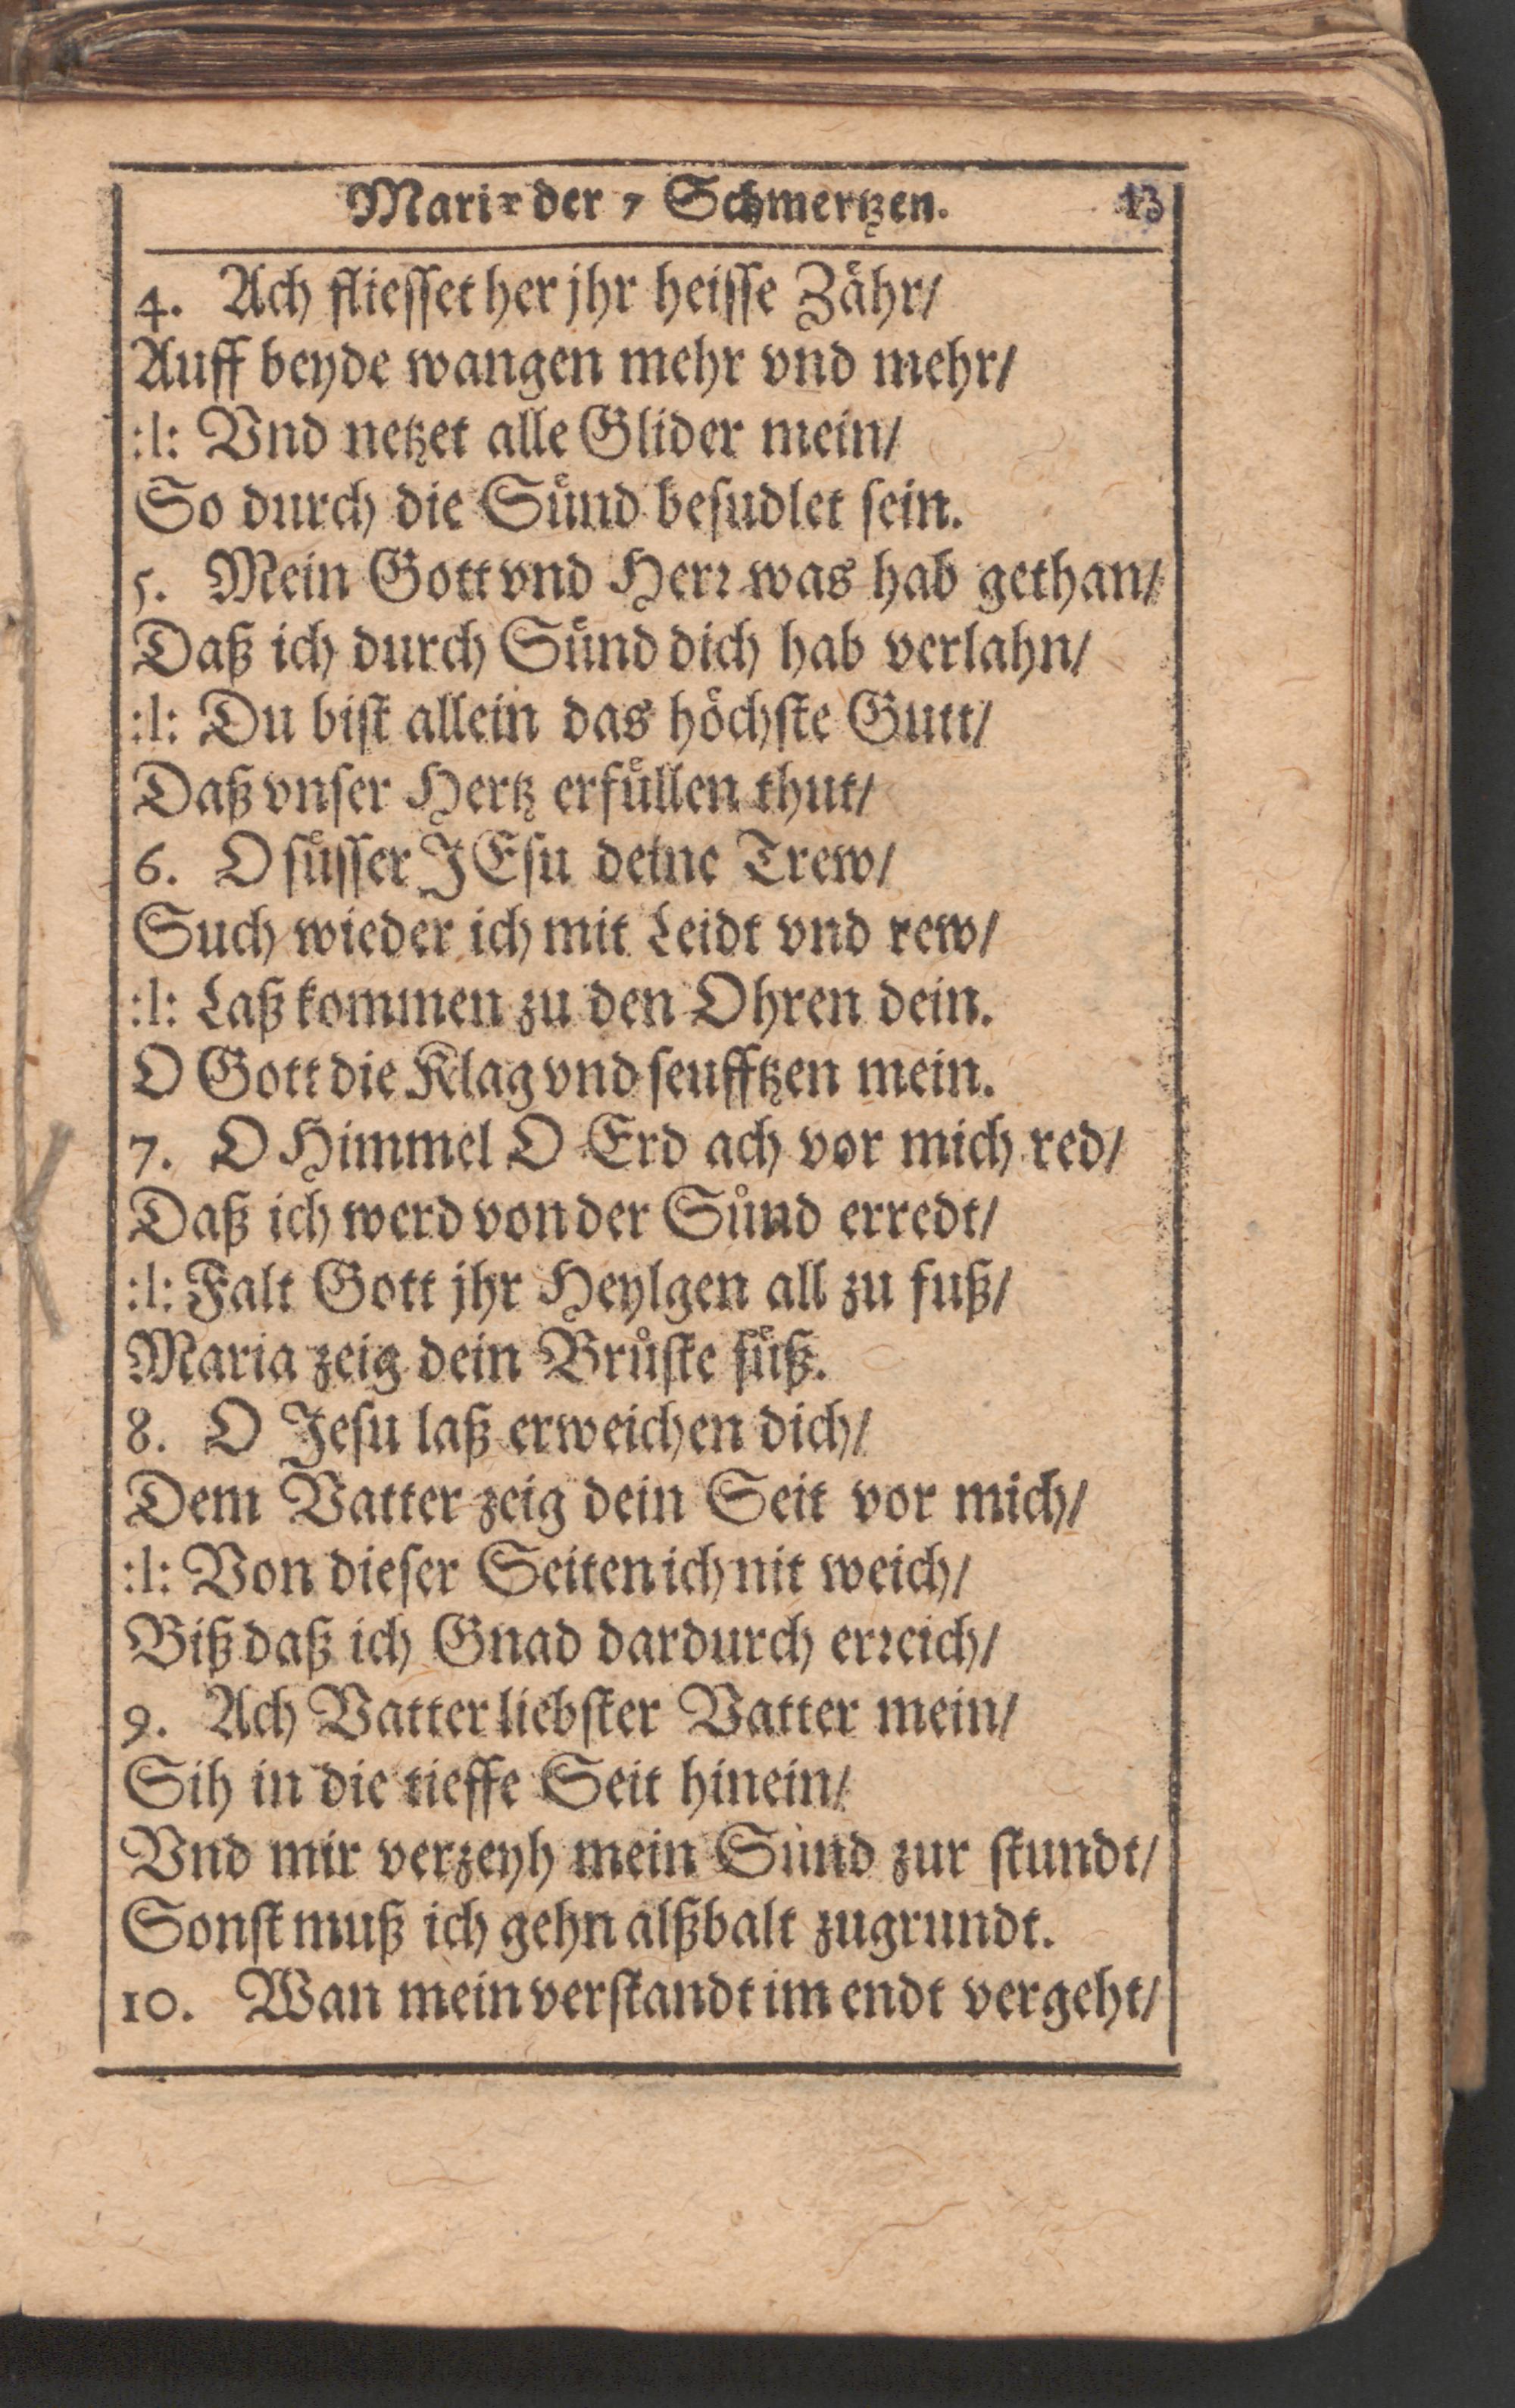 Mariæ der 7 Schmertzen. 13
4. Ach fliesset her jhr heisse Zaͤhr/
Auff beyde wangen mehr vnd mehr/
:l: Vnd netzet alle Glider mein/
So durch die Suͤnd besudlet sein.
5. Mein Gott vnd Herꝛ was hab gethan/
Daß ich durch Suͤnd dich hab verlahn/
:l: Du bist allein das hoͤchste Gutt/
Daß vnser Hertz erfuͤllen thut/
6. O suͤsser JEsu deine Trew/
Such wieder ich mit Leidt vnd rew/
:l: Laß kommen zu den Ohren dein.
O Gott die Klag vnd seufftzen mein.
7. O Himmel O Erd ach vor mich red/
Daß ich werd von der Suͤnd erredt/
:l: Falt Gott jhr Heylgen all zu fuß/
Maria zeig dein Bruͤste suͤß.
8. O Jesu laß erweichen dich/
Dem Vatter zeig dein Seit vor mich/
:l: Von dieser Seiten ich nit weich/
Biß daß ich Gnad dardurch erꝛeich/
9. Ach Vatter liebster Vatter mein/
Sih in die tieffe Seit hinein/
Vnd mir verzeyh mein Suͤnd zur stundt/
Sonst muß ich gehn alßbalt zugrundt.
10. Wan mein verstandt im endt vergeht/